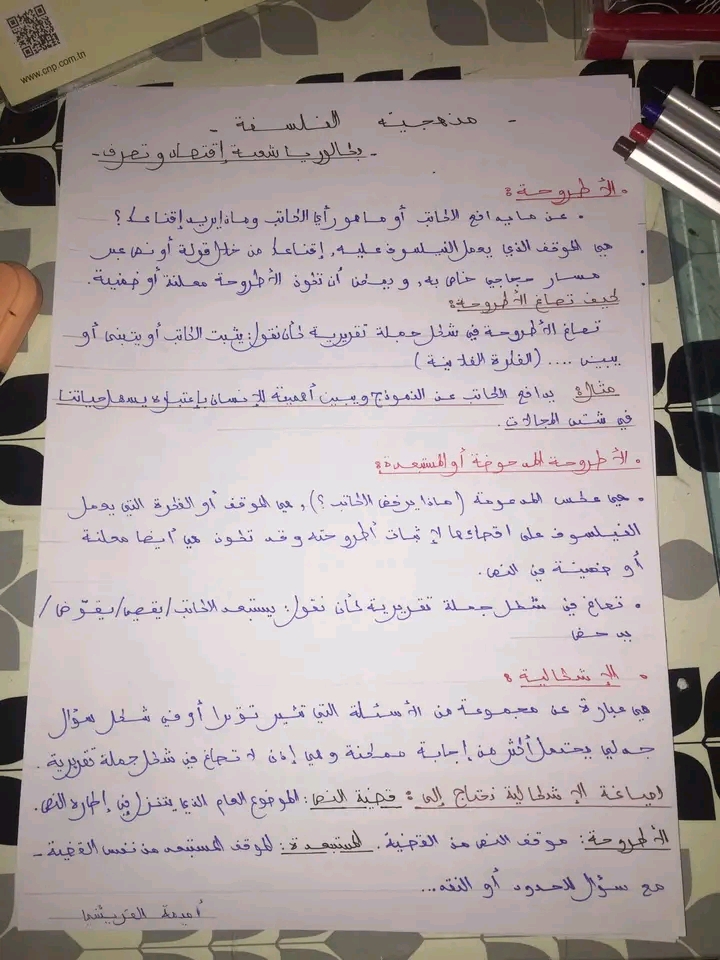 www.cnp.com.tn
- منهجية الفلسفة -
- بكالوريا شعبة إقتصاد و تصرف -
• الأطروحة:
• عن ما يدافع الكاتب أو ما هو رأي الكاتب وماذا يريد إقناعنا؟
• هي الموقف الذي يعمل الفيلسوف عليه, إقناعنا من خلال قولة أو نص عبر
مسار حجاجي خاص به, و يمكن أن تكون الأطروحة معلنة أو ضمنية.
كيف تصاغ الأطروحة:
تصاغ الأطروحة في شكل جملة تقريرية كأن نقول: يثبت الكاتب أو يتبنى أو
يبين .... (الفكرة الفلانية)
مثال: يدافع الكاتب عن النموذج ويبين أهميته للإنسان بإعتباره يسهل حياتنا
في شتى المجالات.
• الأطروحة المدحوضة أو المستبعدة:
• هي عكس المدعومة (ماذا يرفض الكاتب؟), هي الموقف أو الفكرة التي يعمل
الفيلسوف على اقصاءها لإثبات أطروحته وقد تكون هي أيضا معلنة
أو ضمنية في النص.
• تصاغ في شكل جملة تقريرية كأن نقول: يستبعد الكاتب/يقصي/يقوّض/
يدحض
• الإشكالية:
هي عبارة عن مجموعة من الأسئلة التي تثير توترا أو في شكل سؤال
جدلي يحتمل أكثر من إجابة ممكنة وهي إذن لا تصاغ في شكل جملة تقريرية.
لصياغة الإشكالية نحتاج إلى: قضية النص: الموضوع العام الذي يتنزل في إطاره النص.
الأطروحة: موقف النص من القضية. المستبعدة: الموقف المستبعد من نفس القضية -
مع سؤال للحدود أو النقد...
أميمة القريشي